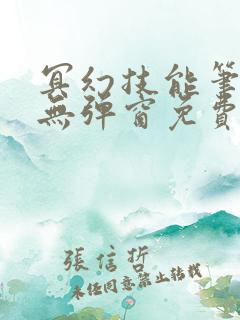 冥幻技能筆
無彈窗免費
張信哲
未经同意禁止转载